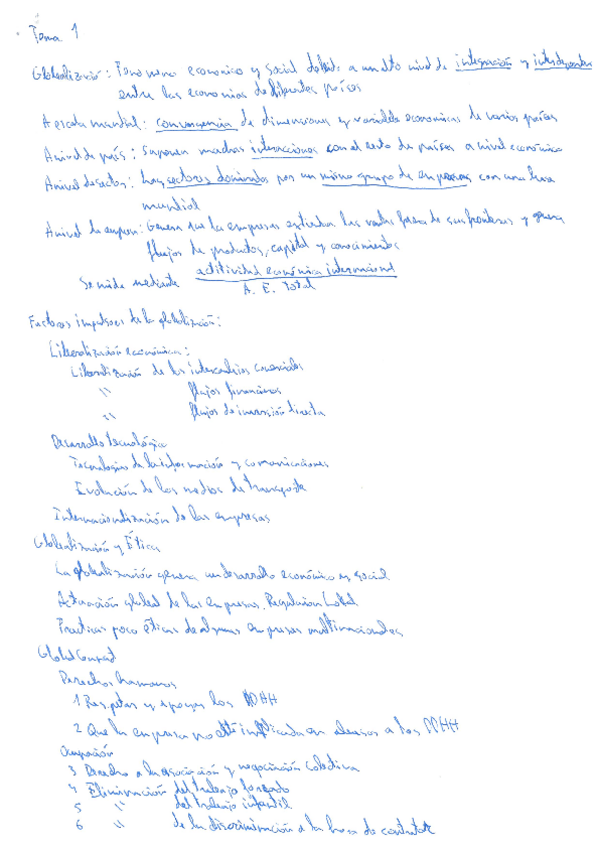 Tema 1
Globalización: Fenomeno economico y social debido a un alto nivel de integración y interdependen
entre las economias de diferentes países
A escala mundial: convergencia de dimensiones y variables economicas de varios países
A nivel de país: Suponen muchas interacciones con el resto de países a nivel económico
A nivel de sector: hay sectores dominados por un mismo grupo de empresas con una base
mundial
A nivel de empresa: Genera que las empresas extiendan las ventas fuera de sus fronteras y genera
flujos de productos, capital y conocimientos
Se mide mediante actitividad económica internacional
A. E. Total
Factores impulsores de la globalización:
Liberalización económica:
Liberalización de los intercambios comerciales
" flujos financieros
" flujos de inversión directa
Desarrollo tecnológico
Tecnologías de la información y comunicaciones
Evolución de los medios de transporte
Internacionalización de las empresas
Globalización y Ética
La globalización genera un desarrollo económico y social
Actuación global de las empresas, Regulacion Local
Practicas poco éticas de algunas empresas multinacionales
Global Compact
Derechos humanos
1 Respetar y apoyar los DDHH
2 Que la empresa no esté implicada en abusos a los DDHH
Ocupación
3 Derecho a la asociación y negociación colectiva
4 Eliminación del trabajo forzado
5 " del trabajo infantil
6 " de la discriminación a la hora de contratar